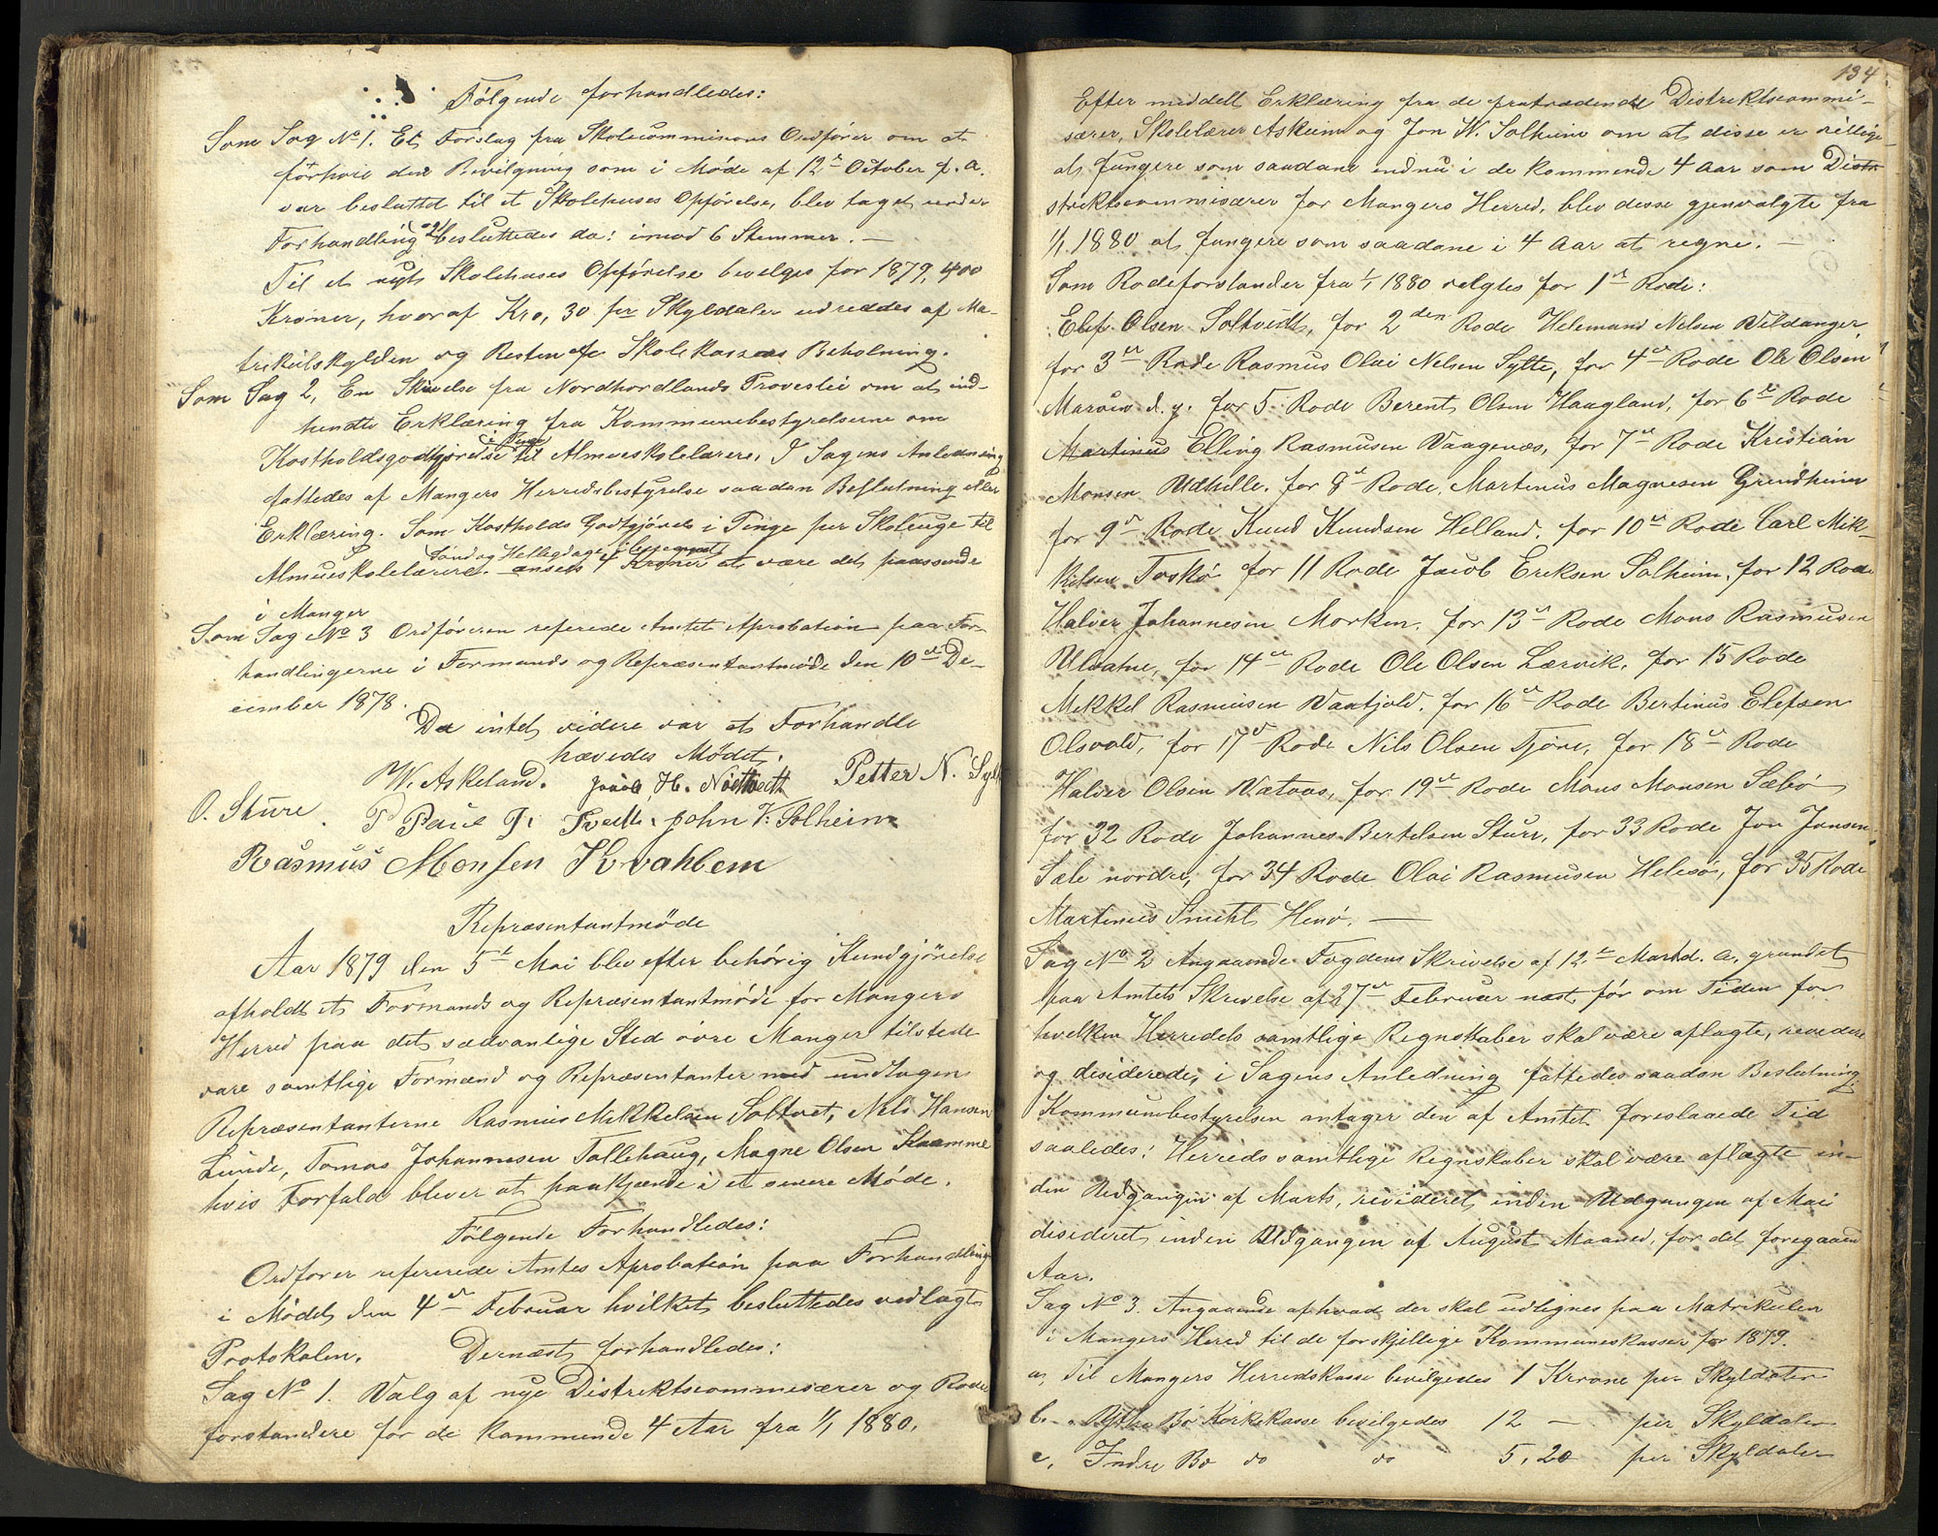 Følgende forhandledes:
Som Sag No 1. Et Forslag fra Skolecommisions Ordfører om at
forhøie den Bevilgning som i Møde af 12te October f. a.
var besluttet til et Skolehuses Opførelse, blev taget under
Forhandling og besluttedes da: imod 6 Stemmer. —
Til et nyt Skolehuses Opførelse bevilges for 1879, 400
Kroner, hvoraf Kro, 30 pr Skyldaler udreddes af Ma-
trikulskylden og Resten af Skolekassens Beholning.
Som Sag 2, En Skrivelse fra Nordhordlands Provestie om at ind-
hendte Erklæring fra Kommunebestyrelserne om
Kostholdsgodtgjørelse i Penge til Almueskolelærere. I Sagens Anledning
fattedes af Mangers Herredsbestyrelse saadan Beslutning eller
Erklæring. Som Kostholds Godtgjørelse i Penge per Skoleuge til
Søndag Helligdage iberegnet
Almueskolelærere. ansees 4 Kroner at være det passende
i Manger
Som Sag No 3 Ordføreren referede Amtets Aprobation paa For-
handlingerne i Formands og Repræsentantmøde den 10de De-
cimber 1878.
Da intet videre var at Forhandle
hævedes Mødet.
W. Askeland. Jacob H. Nottvedt Petter N. Sylt
O. Sture. P Paul J. Tvedt. John V. Solheim
Rasmus Monsen Kvahlem
Repræsentantmøde
Aar 1879 den 5te Mai blev efter behørig Kundgjørelse
afholdt et Formands og Repræsentantmøde for Mangers
Herred paa det sædvanlige Sted øvre Manger tilstede
vare samtlige Formænd og Repræsentanter med undtagen
Repræsentanterne Rasmus Mikkelsen Soltvet, Nels Hansen
Lunde, Tomas Johannesen Tollehaug, Magne Olsen
hvis Forfald blever at paakjende i et senere Møde.
Følgende Forhandledes:
Ordfører refererede Amtes Aprobation paa Forhandling
i Mødet den 4de Februar hvilket besluttedes vedlagt
Protokolen. Dernæst forhandledes:
Sag No 1. Valg af nye Distriktscommisærer og Rode
forstandere for de kommende 4 Aar fra 1/1 1880.
134
Efter meddelt Erklæring fra de fratrædende Distriktscommi-
særer, Skolelærer Askeim og Jon W. Solheim om at disse er villige
at fungere som saadane endnu i de kommende 4 Aar som Distr
striktscommisærer for Mangers Herred, blev desse gjenvalgte fra
1/1 1880 at fungere som saadane i 4 Aar at regne. —
Som Rodeforstander fra 1/1 1880 velgtes for 1ste Rode:
Elef Olsen Soltvedt, for 2den Rode Helemand Nelsen Vildanger
for 3de Rode Rasmus Olai Nelsen Sylte, for 4de Rode Ole Olsen
Marøen d. y. for 5 Rode Berent Olsen Haagland, for 6te Rode
Martinus Elling Rasmusen Vaagenæs, for 7de Rode Kristian
Monsen Udhelle. for 8de Rode, Martinus Magnesen Grendheim
for 9de Rode Knud Knudsen Helland. for 10de Rode Carl Mik-
kelsen Toskø for 11 Rode Jacob Eriksen Solheim, for 12 Rode
Halver Johannesen Morken. for 13de Rode Mons Rasmusen
Ulvatne, for 14de Rode Ole Olsen Lærvik. for 15 Rode
Mekkel Rasmusen Vaatjold. for 16de Rode Bertinus Elefsen
Olsvold, for 17de Rode Nils Olsen Tjøre, for 18de Rode
Halver Olsen Vætaas, for 19de Rode Mons Monsen Sæbø
for 32 Rode Johannes Bertelsen Sture, for 33 Rode Jon Jonsen
Sæle nordre, for 34 Rode Olai Rasmusen Helesø, for 35 Rode
Martinus Smith Henø. —
Sag No 2 Angaaende Fogdens Skrivelse af 12te Marts d. a. grundet
paa Amtets Skrivelse af 27de Februar næst før om Tiden for
hvelken Herredets samtlige Regnskaber skal være aflagte, revedere
og disiderede, i Sagens Anledning fattedes saadan Beslutning:
Kommunebestyrelsen antager den af Amtet foreslaaede Tid
saaledes: Herreds samtlige Regnskaber skal være aflagte in-
den Udgangen af Marts, revideret inden Udgangen af Mai
disideret inden Udgangen af August Maaned, for det foregaaen
Aar.
Sag No 3. Angaaende afhvad der skal udlignes paa Matrikulen
i Mangers Herred til de forskjellige Kommuneskasser for 1879.
a, Til Mangers Herredskasse bevilgedes 1 Krone per Skyldaler
b. Bø Kirkekasse bevilgedes 12 — per Skyldaler
c, Indre Bø do do 5,20 per Skyldaler